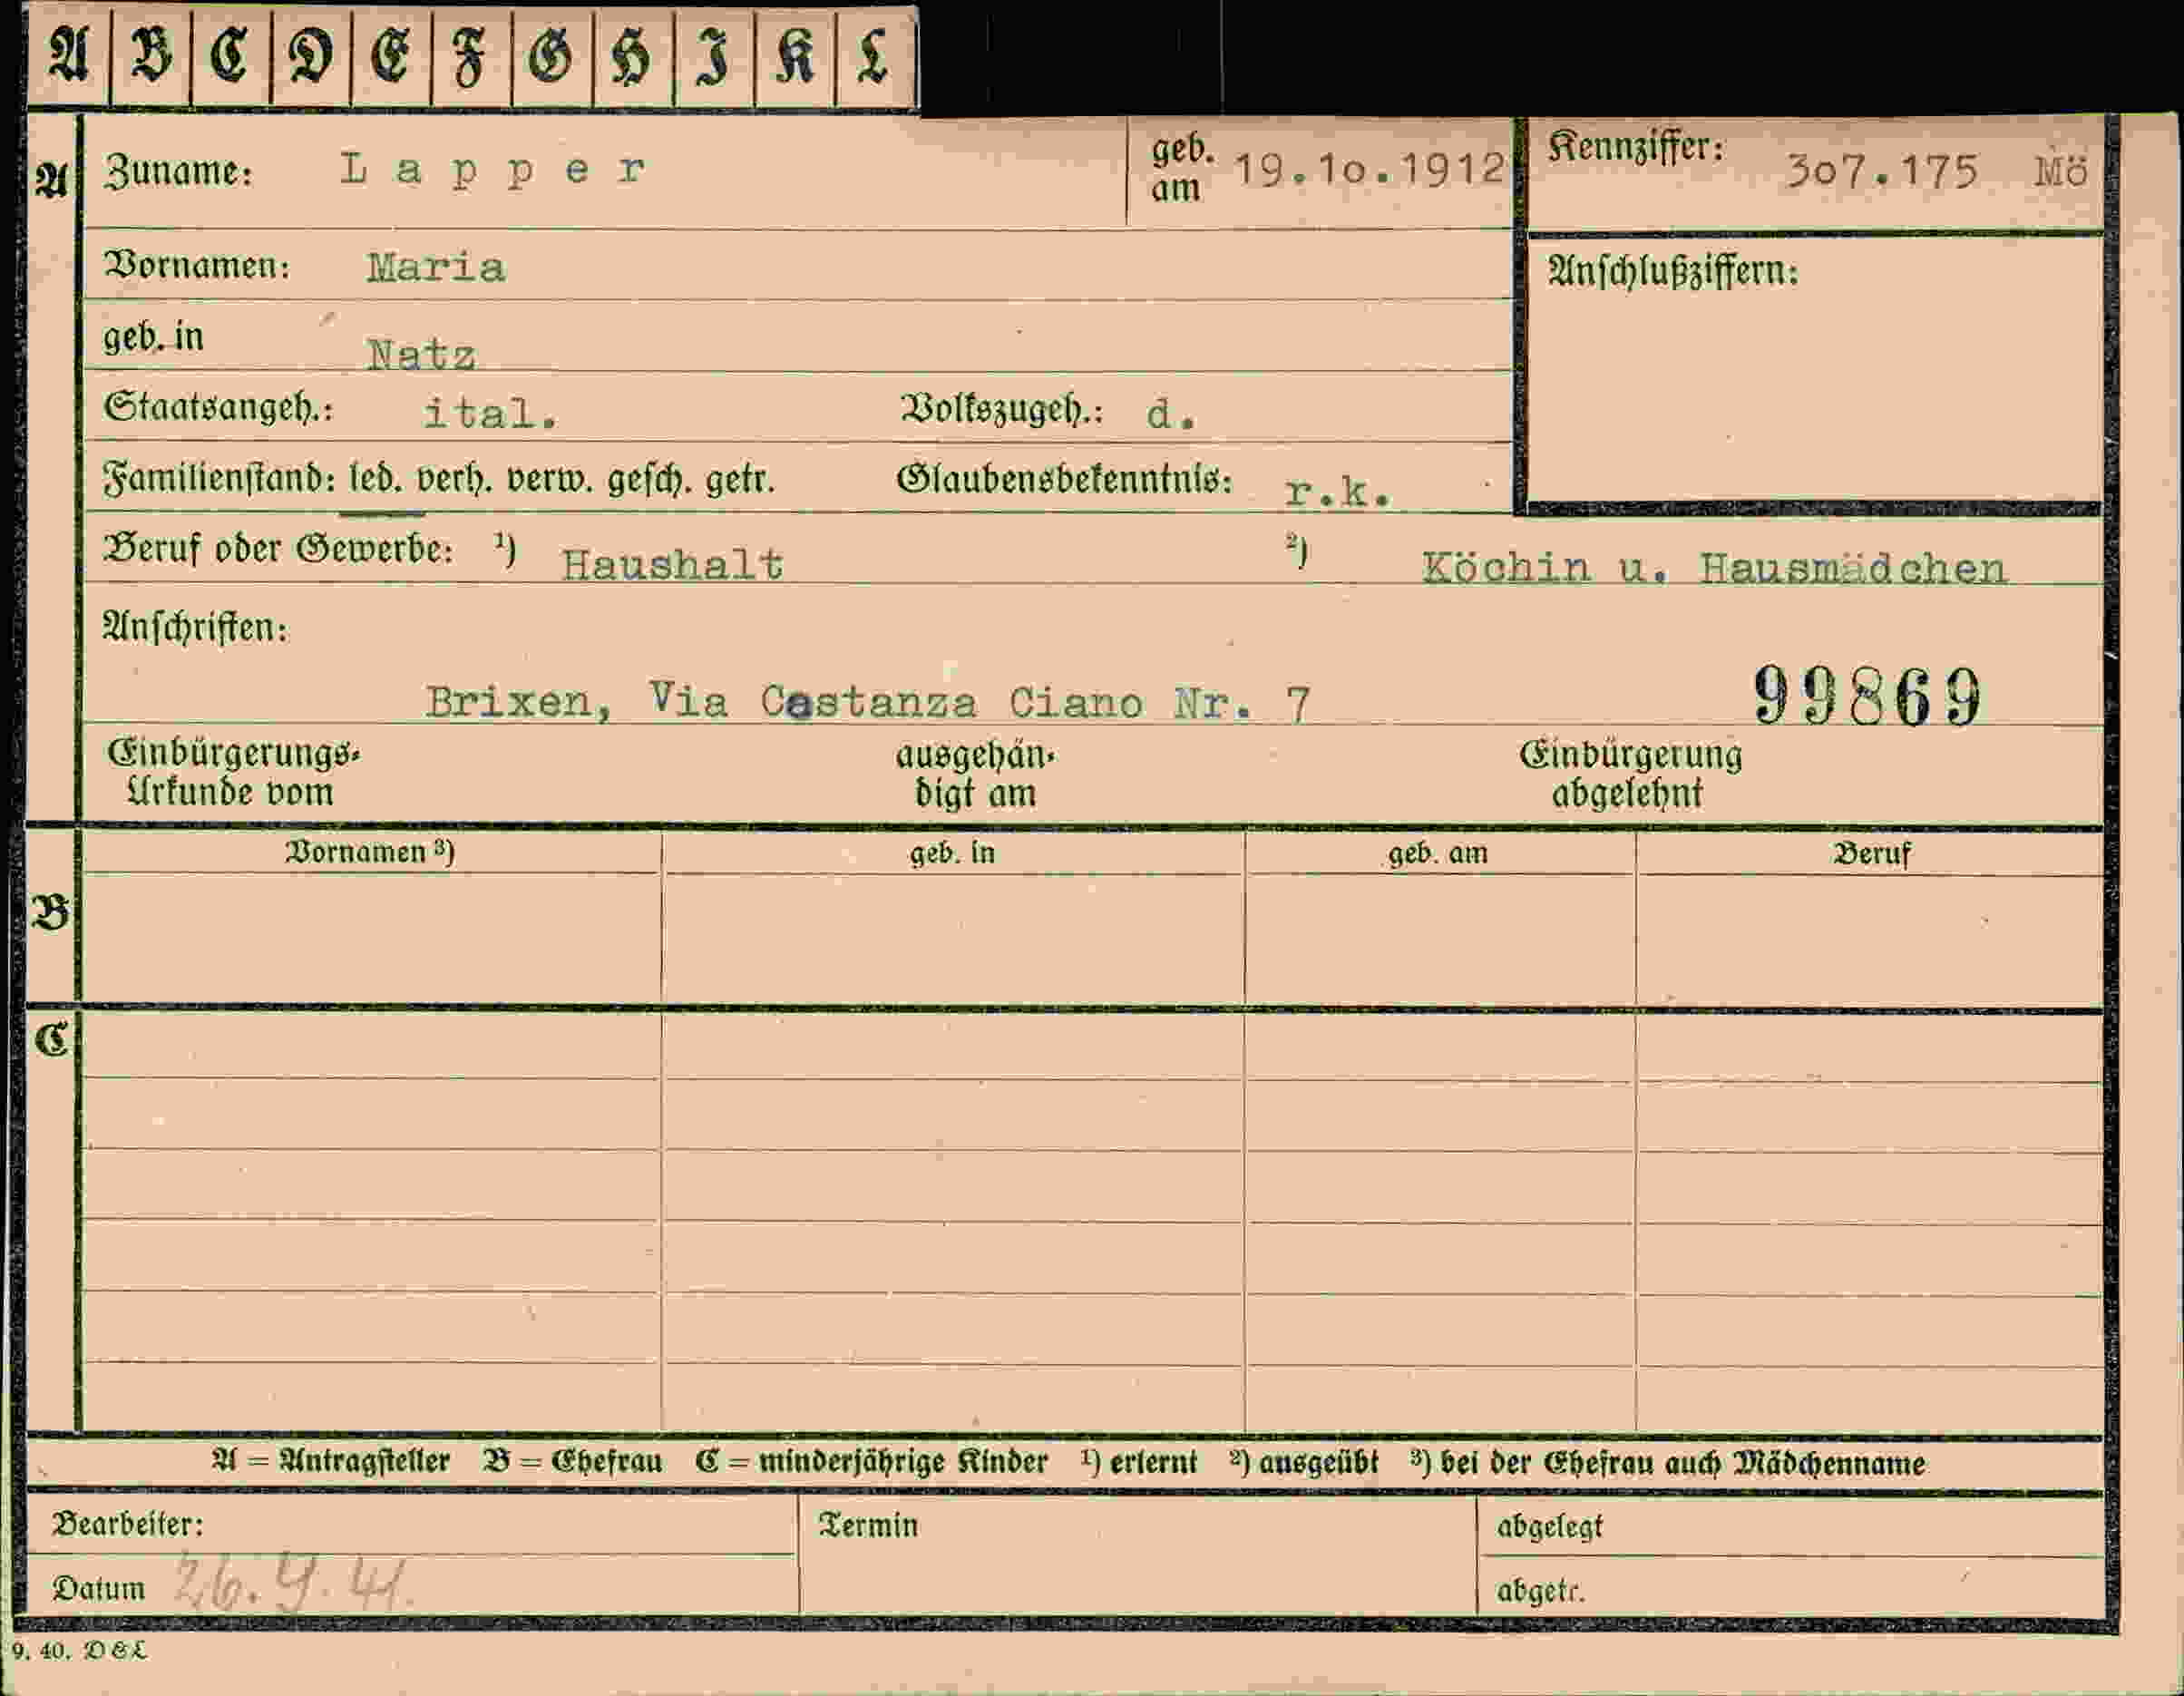 A B C D E F G H I K L
A Zuname: Lapper geb. am 19.10.1912 Kennziffer: 307.175 Mö
Vornamen: Maria Anschlußziffern:
geb. in Natz
Staatsangeh.: ital. Volkszugeh.: d.
Familienstand: led. verh. verw. gesch. getr. Glaubensbekenntnis: r.k.
Beruf oder Gewerbe: ¹) Haushalt ²) Köchin u. Hausmädchen
Anschriften:
Brixen, Via Castanza Ciano Nr. 7 99869
Einbürgerungs- ausgehän- Einbürgerung
Urkunde vom digt am abgelehnt
Vornamen ³) geb. in geb. am Beruf
B
C
A = Antragsteller B = Ehefrau C = minderjährige Kinder ¹) erlernt ²) ausgeübt ³) bei der Ehefrau auch Mädchenname
Bearbeiter: Termin abgelegt
Datum 26.9.41. abgetr.
9. 40. D & L